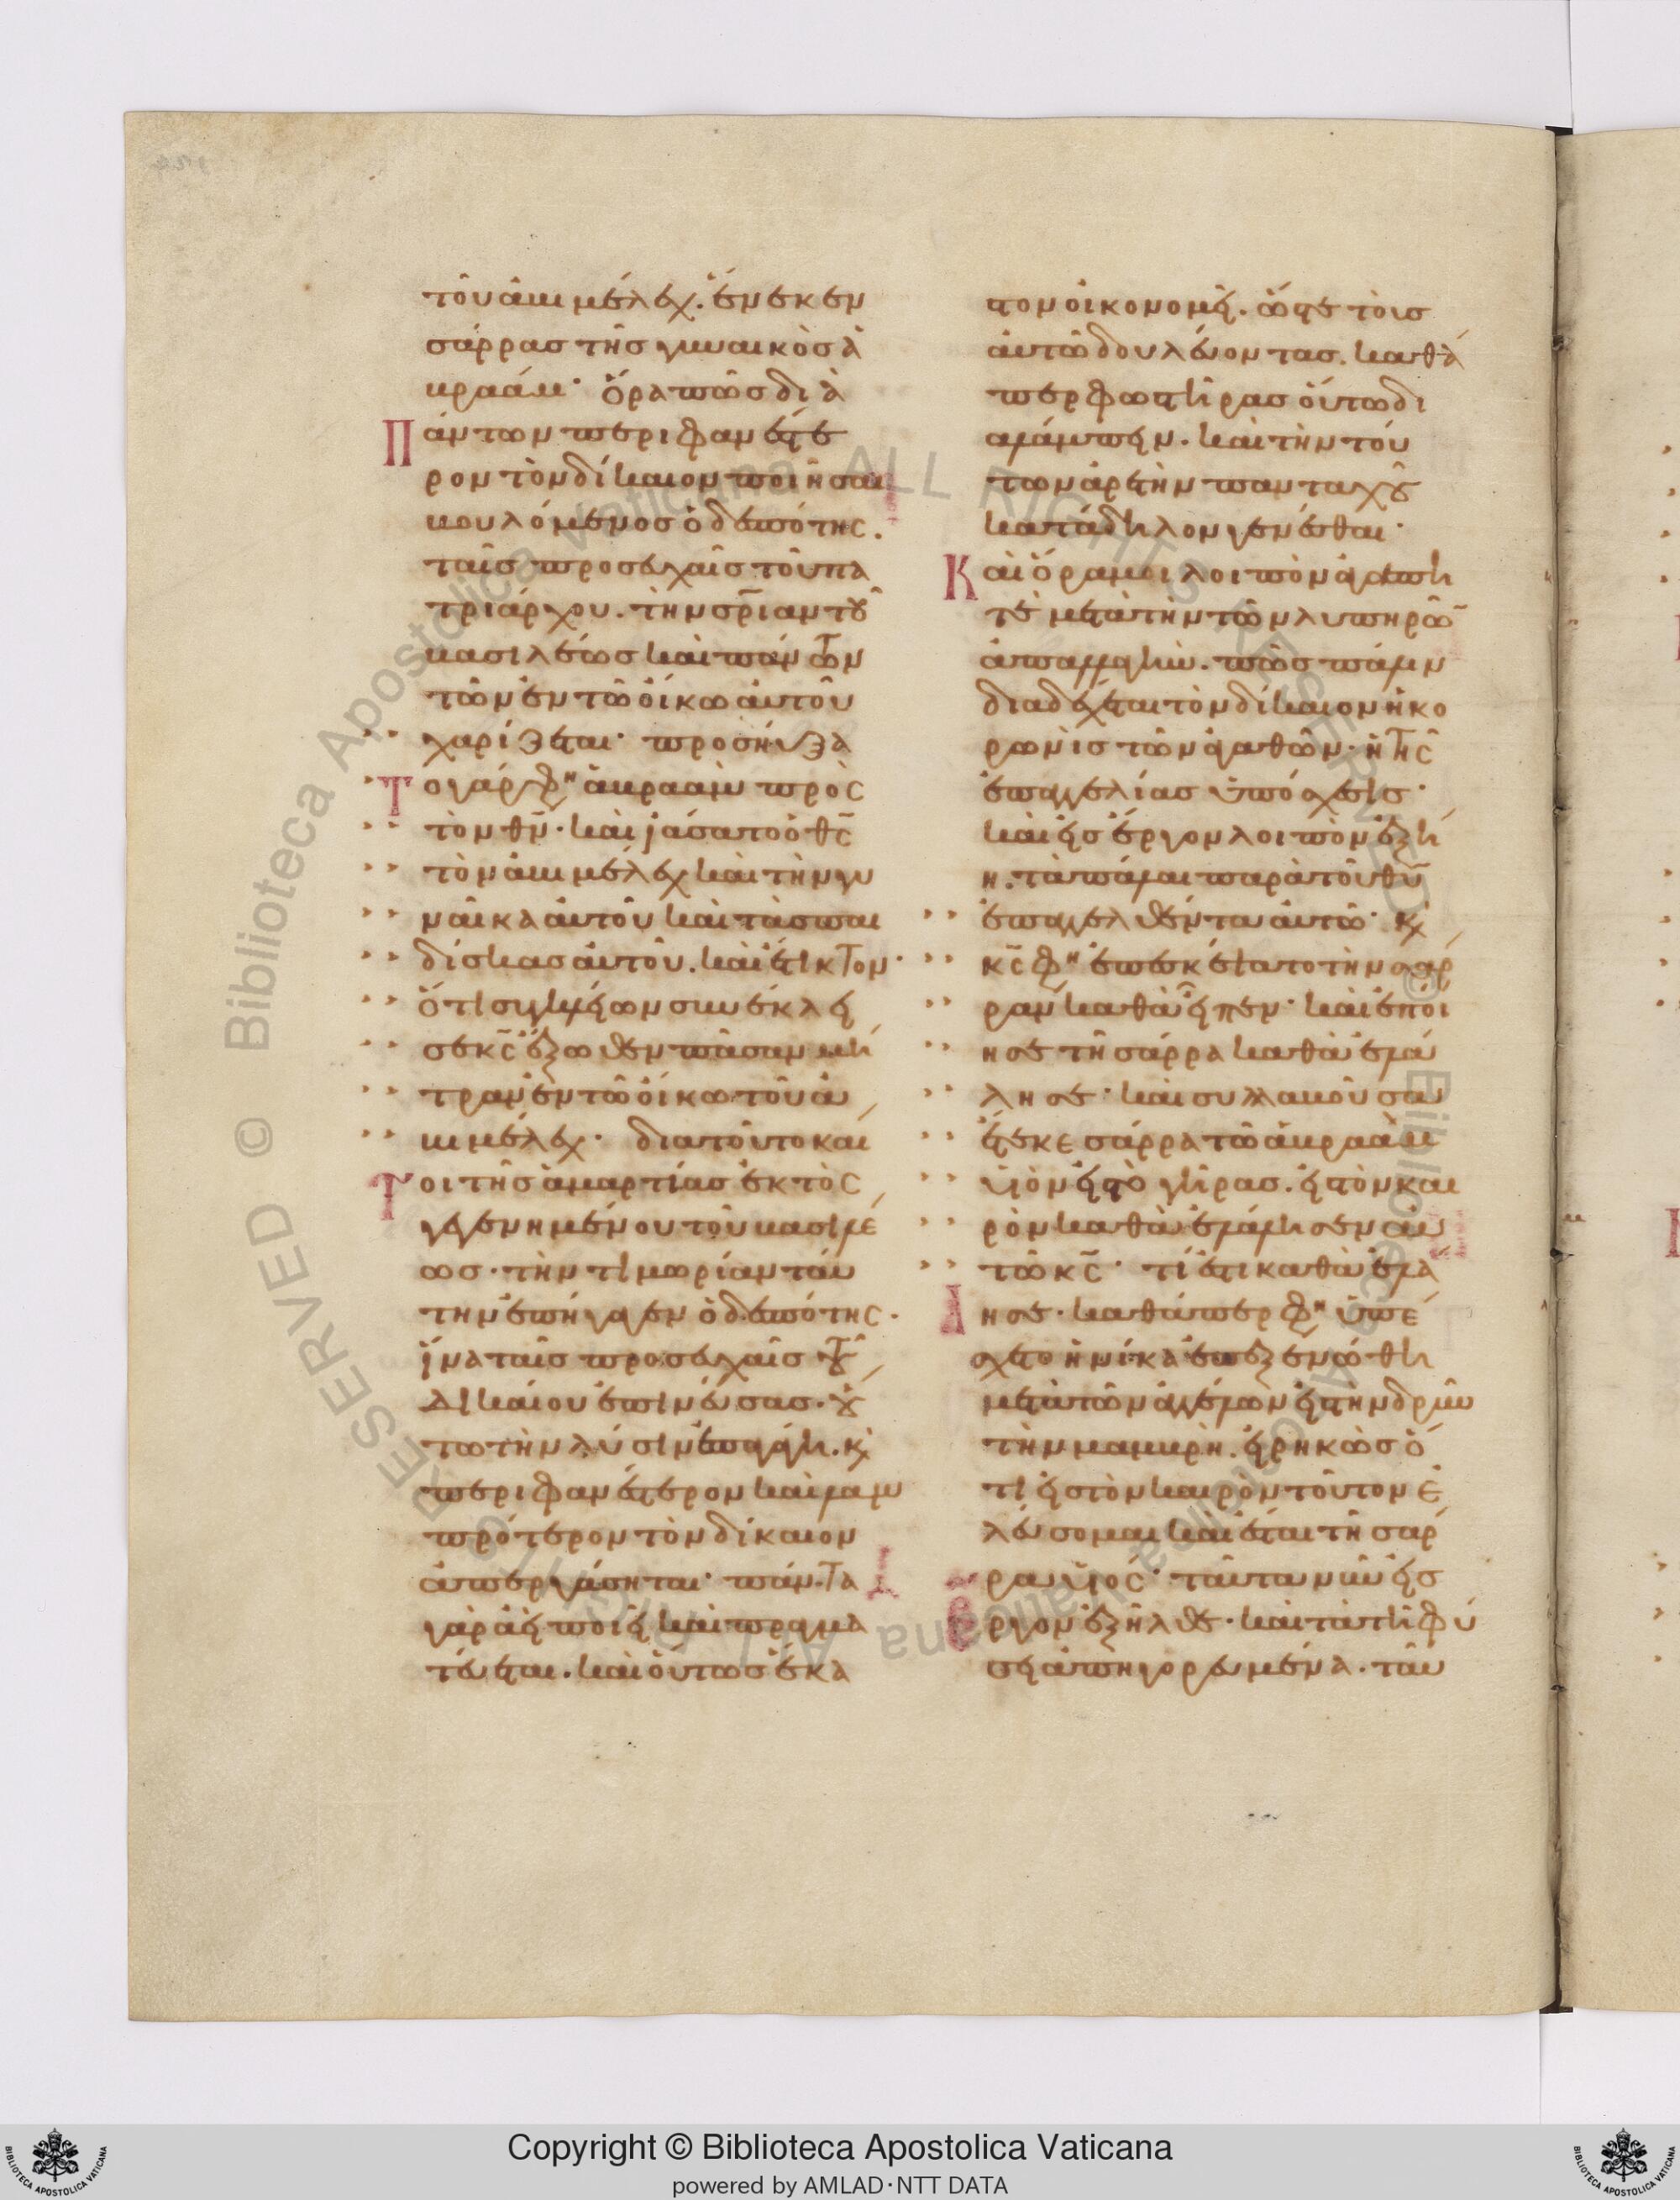 τοῦ ἀβιμέλεχ. ἕνεκεν
σάρρας τῆς γυναικὸς ἀ
βραάμ· ὅρα πῶς διὰ
πάντων περιφανέστε
ρον τὸν δίκαιον ποιῆσαι
βουλόμενος ὁ δεσπότης.
ταῖς προσευχαῖς τοῦ πα
τριάρχου. τὴν σρίαν τοῦ
βασιλέως καὶ πάντων
τῶν ἐν τῶ οἴκω αὐτοῦ
χαρίζεται· προσηύξα
το γάρ φη ἀβραὰμ πρὸς
τὸν θν· καὶ ἰάσατο ὁ θς
τὸν ἀβιμέλεχ καὶ τὴν γυ
ναῖκα αὐτοῦ καὶ τὰς παι
δίσκας αὐτοῦ. καὶ ἔτικτον·
ὅτι συγκλείων συνέκλει
σε κς ἔξωθεν πᾶσαν μή
τραν ἐν τῶ οἴκω τοῦ ἀ
βιμέλεχ· διὰ τοῦτο καί
τοι τῆς ἁμαρτίας ἐκτὸς
γεγενημένου τοῦ βασιλέ
ως· τὴν τιμωρίαν ταύ
την ἐπήγαγεν ὁ δεσπότης·
ἵνα ταῖς προσευχαῖς τοῦ
δικαίου ἐπινεύσας· οὕ
τω τὴν λύσιν ἐπαγάγη. κὶ
περιφανέστερον καὶ λαμ
πρότερον τὸν δίκαιον
ἀπεργάσηται· πάντα
γὰρ ἀεὶ ποιεῖ καὶ πραγμα
τεύεται. καὶ οὕτως ἕκα
στον οἰκονομεῖ. ὥστε τοὺς
αὐτῶ δουλεύοντας. καθά
περ φωστῆρας οὕτω δι
αλάμπειν. καὶ τὴν τού
των ἀρετὴν πανταχοῦ
κατάδηλον γενέσθαι·
Καὶ ὅρα μοι λοιπὸν ἀγαπη
τὲ μετὰ τὴν τῶν λυπηρῶν
ἀπαλλαγὴν. πῶς πάλιν
διαδέχεται τὸν δίκαιον ἡ κο
ρωνὶς τῶν ἀγαθῶν· ἡ τῆς
ἐπαγγελίας ὑπόσχεσις·
καὶ εἰς ἔργον λοιπὸν ἐξή
ει. τὰ πάλαι παρὰ τοῦ θυ
ἐπαγγελθέντα αὐτῶ· κὶ
κς φη ἐπεσκέψατο τὴν σάρ
ραν καθὰ εἶπεν· καὶ ἐποί
ησε τῆ σάρρα καθὰ ἐλά
λησε· καὶ συλλαβοῦσα
ἔτεκε σάρρα τῶ ἀβραὰμ
υἱὸν εἰς τὸ γῆρας. εἰς τὸν και
ρὸν καθὰ ἐλάλησεν αὐ
τῶ κς· τί ἐστι καθὰ ἐλά
λησε· καθάπερ φη ὑπέ
σχετο ἡνίκα ἐπεξενώθη
μετὰ τῶν ἀγγέλων εἰς τὴν δρῦν
τὴν μαμβρὴ. εἰρηκὼς ὅ
τι εἰς τὸν καιρὸν τοῦτον ἐ
λεύσομαι καὶ ἔσται τῆ σάρ
ρα υἱος· ταῦτα νῦν εἰς
ἔργον ἐξῆλθε· καὶ τὰ τῆ φύ
σει ἀπηγορευμένα. ταῦ